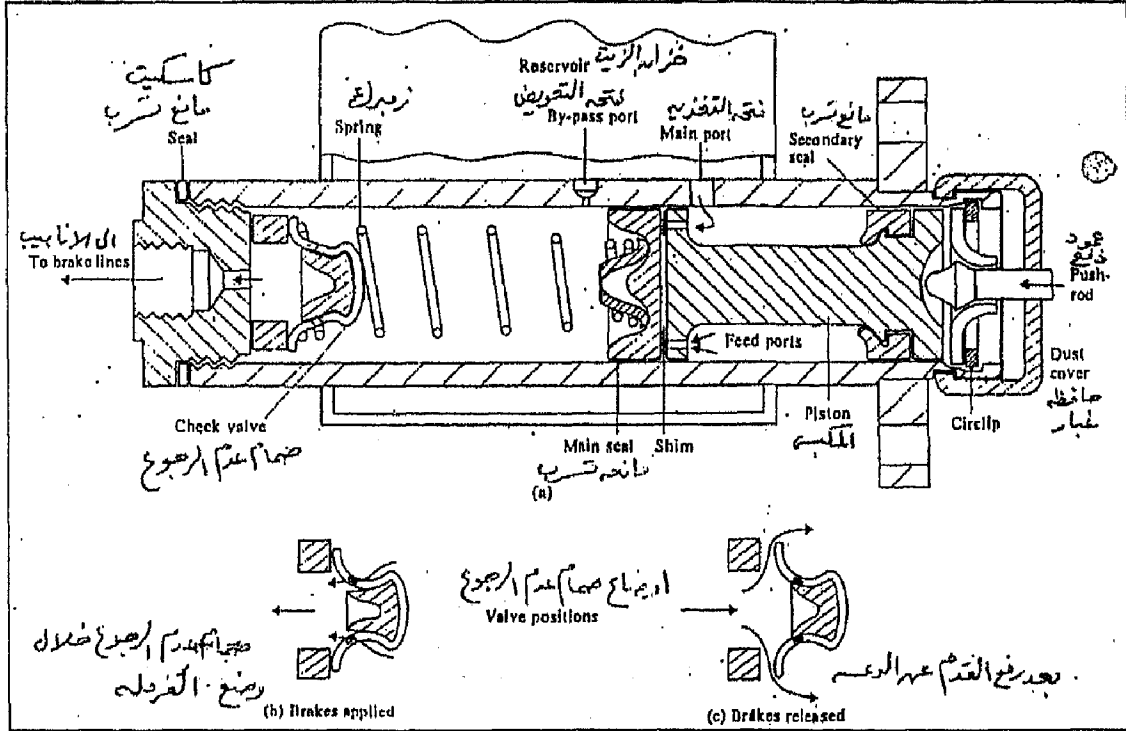 كاسكيت
مانع تسرب
Seal
زمبرك
Spring
Reservoir خزان الزيت
فتحه التعويض
By-pass port
فتحه التغذيه
Main port
مانع تسرب
Secondary
seal
الى الانابيب
To brake lines
عمود
دفع
Push-
rod
Feed ports
Dust
cover
حافظه
غبار
Check valve
ضمام عدم الرجوع
Main seal
مانعه تسرب
Shim
Piston
المكبس
Circlip
(a)
اوضاع ضمام عدم الرجوع
Valve positions
ضمام عدم الرجوع خلال
وضع الفرمله
(b) Brakes applied
بعد رفع القدم عن الدعسه
(c) Brakes released